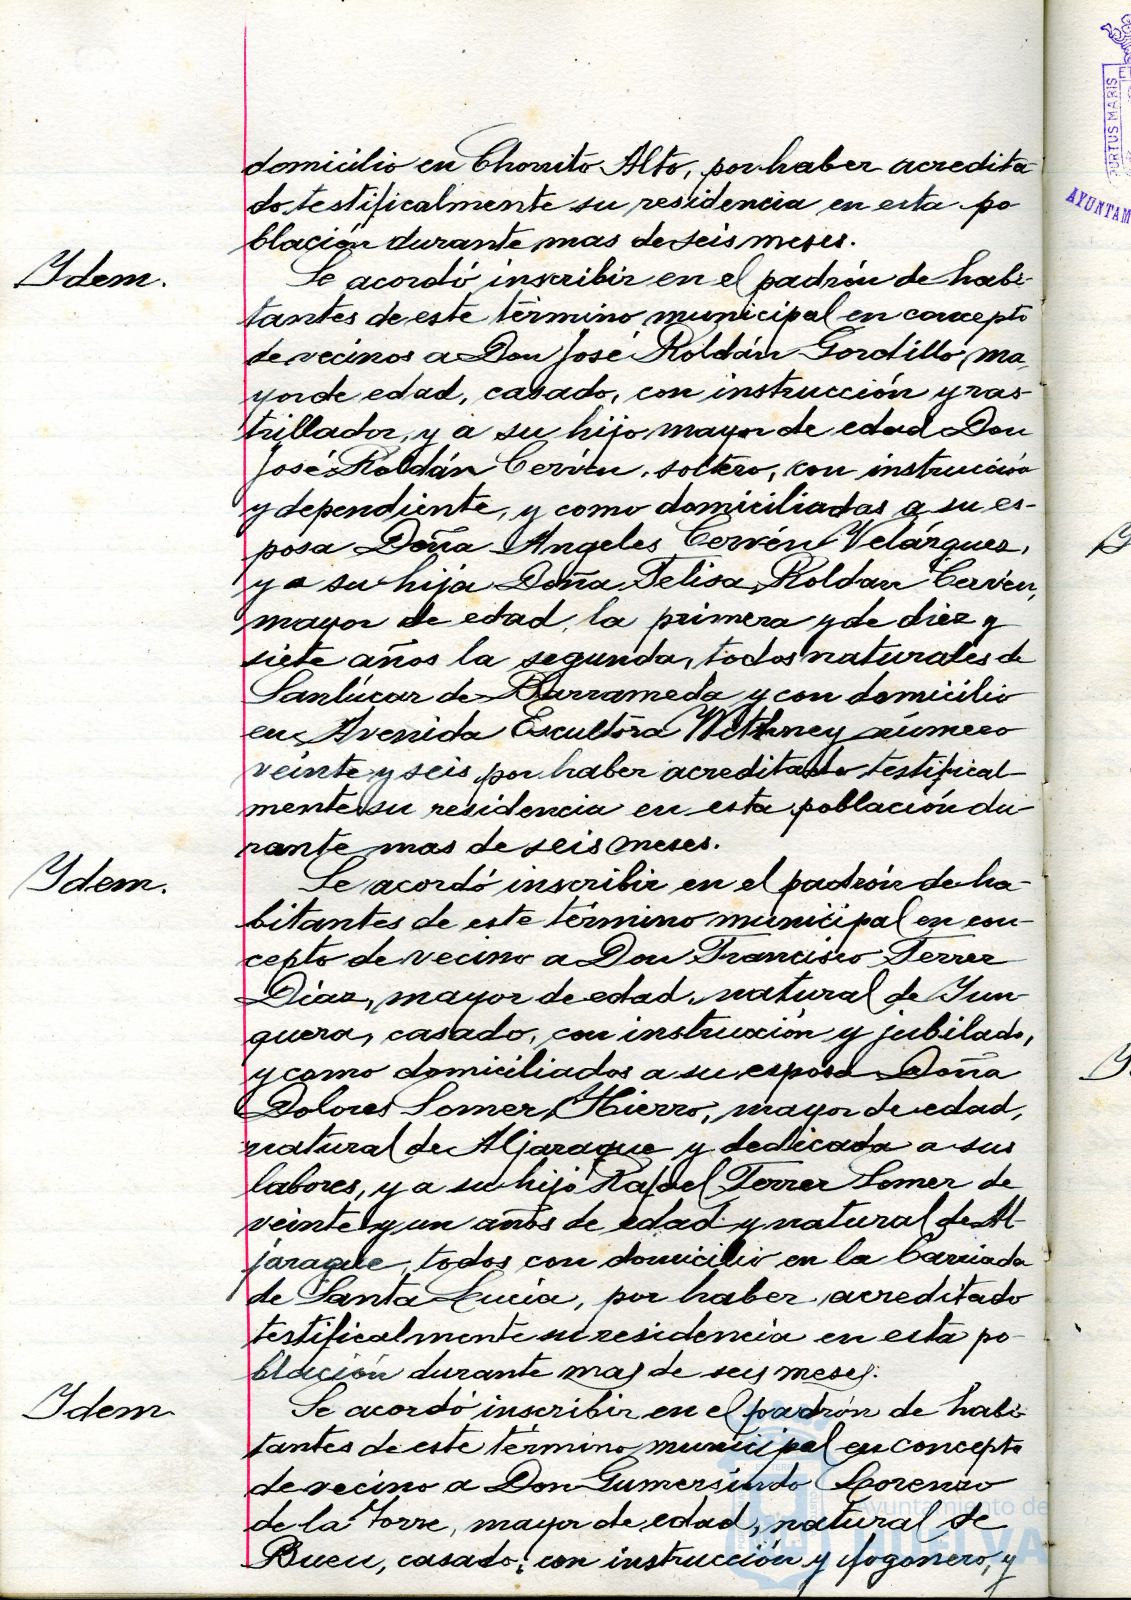 domicilio en Chorrito Alto, por haber acredita
do testificalmente su residencia en esta po
blación durante mas de seis meses.
Idem.
Se acordó inscribir en el padrón de habi-
tantes de este término municipal en concepto
de vecinos a Don José Roldán Gordillo, ma
yor de edad, casado, con instrucción y ras-
trillador, y a su hijo mayor de edad Don
José Roldán Cervén, soltero, con instrucción
y dependiente, y como domiciliadas a su es-
posa Doña Angeles Cervén Velárquez,
y a su hija Doña Felisa Roldan Cerven,
mayor de edad la primera y de diez y
siete años la segunda, todos naturales de
Sanlúcar de Barrameda y con domicilio
en Avenida Escultora Wethney número
veinte y seis por haber acreditado testifical-
mente su residencia en esta población du-
rante mas de seis meses.
Idem.
Se acordó inscribir en el padrón de ha-
bitantes de este término municipal en con-
cepto de vecino a Don Francisco Ferrer
Diaz, mayor de edad, natural de Jun-
quera, casado, con instrucción y jubilado,
y como domiciliados a su esposa Doña
Dolores Somer Hierro, mayor de edad,
natural de Aljaraque y dedicada a sus
labores, y a su hijo Rafael Ferrer Somer de
veinte y un años de edad y natural de Al-
jaraque, todos con domicilio en la barriada
de Santa Lucia, por haber acreditado
testificalmente su residencia en esta po-
blación durante mas de seis meses.
Idem
Se acordó inscribir en el padrón de habi-
tantes de este término municipal en concepto
de vecino a Don Gumersindo Lorenzo
de la Torre, mayor de edad, natural de
Bueu, casado, con instrucción y fogonero, y
PORTUS MARIS
AYUNTAM
Ayuntamiento de
HUELVA